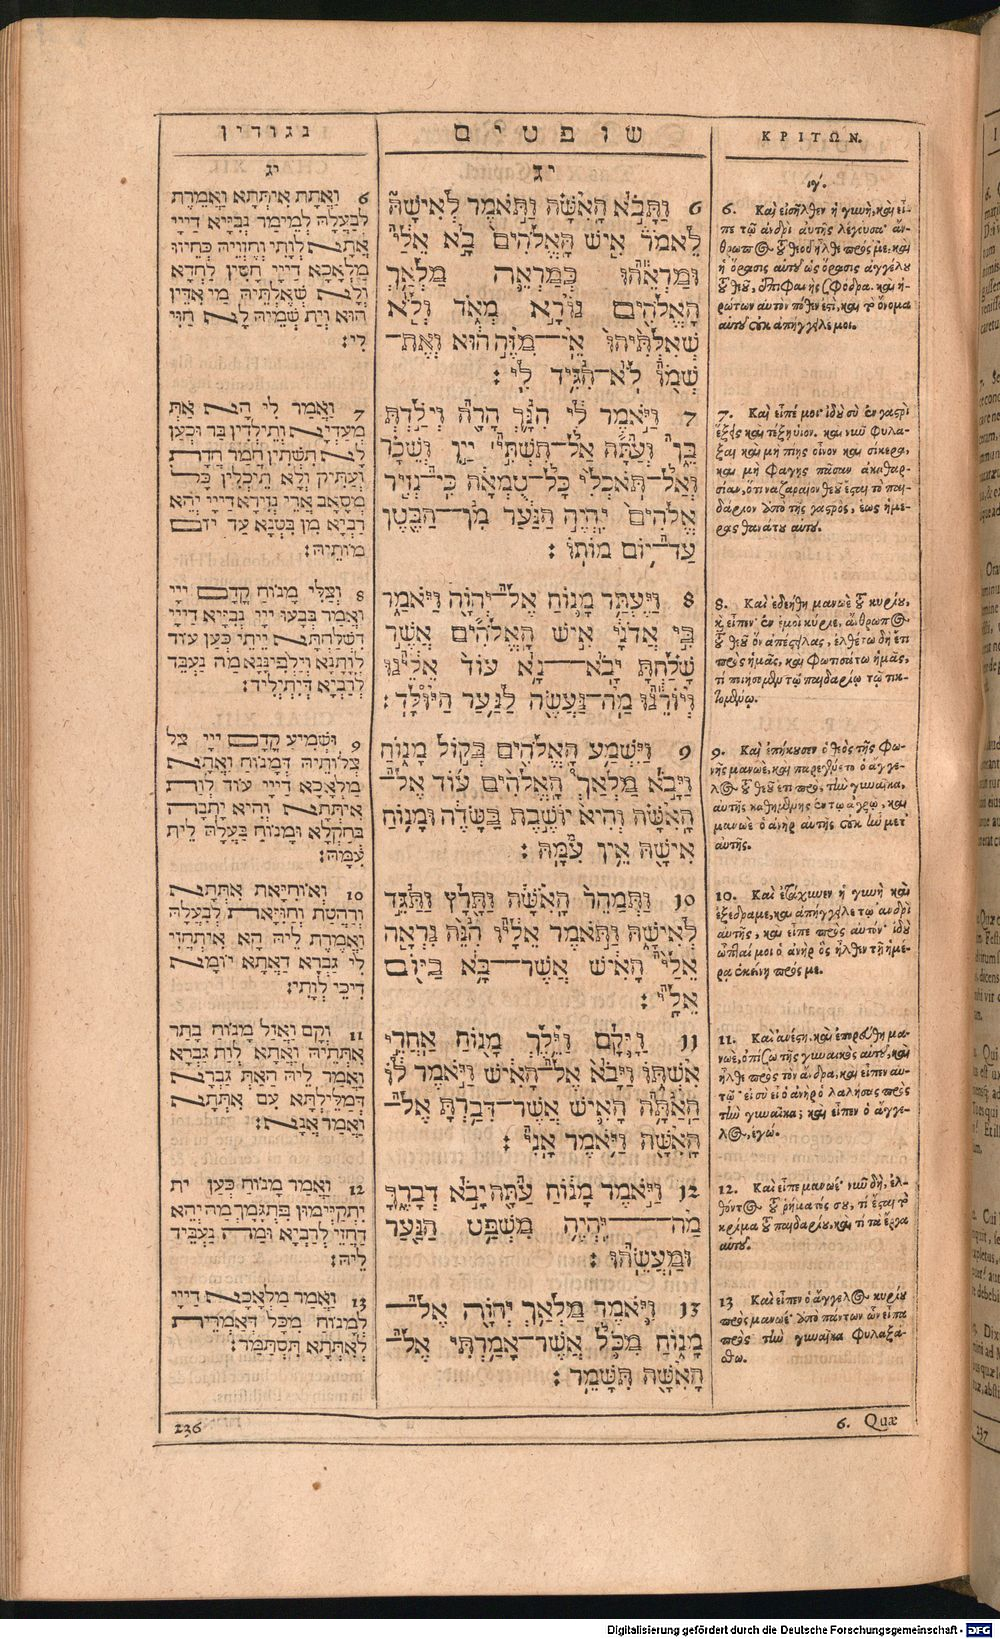 נגודין
יג
6 וַאֲתַת אִיתְּתָא וַאֲמֶרֶת
לְבַעֲלַהּ לְמֵימַר נְבִיָּיא דַיְיָי
אֲתָא לְוָתִי וְחֶזְוֵיהּ כְּחֵיזוּ
מַלְאֲכָא דַיְיָי חֲסִין לַחֲדָא
וְלָא שְׁאֶלְתֵּיהּ מֵי אִדֵין
הוּא וְיַת שְׁמֵיהּ לָא חַוִּי
לִי:
7 וַאֲמַר לִי הָא אַתְּ
מְעַדְּיָא וְתֵילְדִין בַּר וּכְעַן
לָא תִשְׁתִּין חֲמַר חֲדַת
וְעַתִּיק וְלָא תֵיכְלִין כָּל
מְסָאַב אֲרֵי נְזִירָא דַיְיָי יְהֵא
רַבְיָא מִן בִּטְנָא עַד יוֹם
מוֹתֵיהּ:
8 וְצַלִּי מָנוֹחַ קֳדָם יְיָי
וַאֲמַר בְּבָעוּ יְיָי נְבִיָּיא דַיְיָי
דִּשְׁלַחְתָּא יֵיתֵי כְעַן עוֹד
לְוָתָנָא וְיַלְּפִינָנָא מַה נַעְבֵּד
לְרַבְיָא דְּיִתְיְלִיד:
9 וּשְׁמִיעַ קֳדָם יְיָי צְל
צְלוֹתֵיהּ דְּמָנוֹחַ וַאֲתָא
מַלְאֲכָא דַיְיָי עוֹד לְוָת
אִיתְּתָא וְהִיא יָתְבָה
בְּחַקְלָא וּמָנוֹחַ בַּעֲלַהּ לֵית
עִמַּהּ:
10 וְאוֹחִיאַת אִתְּתָא
וּרְהָטַת וְחַוִּיאַת לְבַעֲלַהּ
וַאֲמֶרֶת לֵיהּ הָא אִיתְחֲזִי
לִי גַבְרָא דַאֲתָא יוֹמָא
דֵיכֵי לְוָתִי:
11 וְקָם וַאֲזַל מָנוֹחַ בָּתַר
אִתְּתֵיהּ וַאֲתָא לְוָת גַּבְרָא
וַאֲמַר לֵיהּ הַאַתְּ גַּבְרָא
דְּמַלֵּילְתָּא עִם אִתְּתָא
וַאֲמַר אֲנָא:
12 וַאֲמַר מָנוֹחַ כְּעַן יִת
יִתְקַיְּימוּן פִּתְגָמָךְ מַה יְהֵא
דַּחֲזֵי לְרַבְיָא וּמַה נַעֲבֵיד
לֵיהּ:
13 וַאֲמַר מַלְאֲכָא דַיְיָי
לְמָנוֹחַ מִכָּל דַּאֲמָרִית
לְאִתְּתָא תִּסְתַּמַּר:
שופטים
יג
6 וַתָּבֹא הָאִשָּׁה וַתֹּאמֶר לְאִישָׁהּ
לֵאמֹר אִישׁ הָאֱלֹהִים בָּא אֵלַי
וּמַרְאֵהוּ כְּמַרְאֵה מַלְאַךְ
הָאֱלֹהִים נוֹרָא מְאֹד וְלֹא
שְׁאִלְתִּיהוּ אֵי־מִזֶּה הוּא וְאֶת־
שְׁמוֹ לֹא־הִגִּיד לִי:
7 וַיֹּאמֶר לִי הִנָּךְ הָרָה וְיֹלַדְתְּ
בֵּן וְעַתָּה אַל־תִּשְׁתִּי יַיִן וְשֵׁכָר
וְאַל־תֹּאכְלִי כָּל־טֻמְאָה כִּי־נְזִיר
אֱלֹהִים יִהְיֶה הַנַּעַר מִן־הַבֶּטֶן
עַד־יוֹם מוֹתוֹ:
8 וַיֶּעְתַּר מָנוֹחַ אֶל־יְהוָֹה וַיֹּאמַר
בִּי אֲדֹנָי אִישׁ הָאֱלֹהִים אֲשֶׁר
שָׁלַחְתָּ יָבֹא־נָא עוֹד אֵלֵינוּ
וְיוֹרֵנוּ מַה־נַּעֲשֶׂה לַנַּעַר הַיּוּלָּד:
9 וַיִּשְׁמַע הָאֱלֹהִים בְּקוֹל מָנוֹחַ
וַיָּבֹא מַלְאַךְ הָאֱלֹהִים עוֹד אֶל־
הָאִשָּׁה וְהִיא יוֹשֶׁבֶת בַּשָּׂדֶה וּמָנוֹחַ
אִישָׁהּ אֵין עִמָּהּ:
10 וַתְּמַהֵר הָאִשָּׁה וַתָּרָץ וַתַּגֵּד
לְאִישָׁהּ וַתֹּאמֶר אֵלָיו הִנֵּה נִרְאָה
אֵלַי הָאִישׁ אֲשֶׁר־בָּא בַיּוֹם
אֵלָי:
11 וַיָּקָם וַיֵּלֶךְ מָנוֹחַ אַחֲרֵי
אִשְׁתּוֹ וַיָּבֹא אֶל־הָאִישׁ וַיֹּאמֶר לוֹ
הַאַתָּה הָאִישׁ אֲשֶׁר־דִּבַּרְתָּ אֶל־
הָאִשָּׁה וַיֹּאמֶר אָנִי:
12 וַיֹּאמֶר מָנוֹחַ עַתָּה יָבֹא דְבָרֶיךָ
מַה־יִּהְיֶה מִשְׁפַּט הַנַּעַר
וּמַעֲשֵׂהוּ:
13 וַיֹּאמֶר מַלְאַךְ יְהוָֹה אֶל־
מָנוֹחַ מִכֹּל אֲשֶׁר־אָמַרְתִּי אֶל־
הָאִשָּׁה תִּשָּׁמֵר:
ΚΡΙΤΩΝ.
ιγ́.
6. Καὶ εἰσῆλθεν ἡ γυνὴ, καὶ εἶ-
πε τῷ ἀνδρὶ αὐτῆς λέγουσα· ἄν-
θρωπος τοῦ θεοῦ ἦλθε πρός με, καὶ
ἡ ὅρασις αὐτοῦ ὡς ὅρασις ἀγγέλου
τοῦ θεοῦ, ἐπιφανὴς σφόδρα. καὶ ἠ-
ρώτων αὐτὸν πόθεν ἐστὶ, καὶ τὸ ὄνομα
αὐτοῦ οὐκ ἀπήγγειλέ μοι.
7. Καὶ εἶπέ μοι· ἰδοὺ σὺ ἐν γαστρὶ
ἕξεις καὶ τέξῃ υἱόν. καὶ νῦν φύλα-
ξαι καὶ μὴ πίῃς οἶνον καὶ σίκερα,
καὶ μὴ φάγῃς πᾶσαν ἀκαθαρ-
σίαν, ὅτι ναζαραῖον θεοῦ ἔσται τὸ παι-
δάριον ἀπὸ τῆς γαστρὸς, ἕως ἡμέ-
ρας θανάτου αὐτοῦ.
8. Καὶ ἐδεήθη μανωὲ τοῦ κυρίου,
καὶ εἶπεν· ἐν ἐμοὶ κύριε, ἄνθρωπος
τοῦ θεοῦ ὃν ἀπέστειλας, ἐλθέτω δὴ ἔτι
πρὸς ἡμᾶς, καὶ φωτισάτω ἡμᾶς,
τί ποιήσωμεν τῷ παιδαρίῳ τῷ τικ-
τομένῳ.
9. Καὶ ἐπήκουσεν ὁ θεὸς τῆς φω-
νῆς μανωὲ, καὶ παρεγένετο ὁ ἄγγε-
λος τοῦ θεοῦ ἔτι πρὸς τὴν γυναῖκα,
αὐτῆς καθημένης ἐν τῷ ἀγρῷ, καὶ
μανωὲ ὁ ἀνὴρ αὐτῆς οὐκ ἦν μετ'
αὐτῆς.
10. Καὶ ἐτάχυνεν ἡ γυνὴ καὶ
ἐξέδραμε, καὶ ἀπήγγειλε τῷ ἀνδρὶ
αὐτῆς, καὶ εἶπε πρὸς αὐτόν· ἰδοὺ
ὦπταί μοι ὁ ἀνὴρ ὃς ἦλθεν τῇ ἡμέ-
ρᾳ ἐκείνῃ πρός με.
11. Καὶ ἀνέστη, καὶ ἐπορεύθη μα-
νωὲ, ὀπίσω τῆς γυναικὸς αὐτοῦ, καὶ
ἦλθε πρὸς τὸν ἄνδρα, καὶ εἶπεν αὐ-
τῷ· εἰ σὺ εἶ ὁ ἀνὴρ ὁ λαλήσας πρὸς
τὴν γυναῖκα; καὶ εἶπεν ὁ ἄγγε-
λος, ἐγώ.
12. Καὶ εἶπε μανωέ· νῦν δὴ, ἐλ-
θόντος τοῦ ῥήματός σου, τί ἔσται τὸ
κρίμα τοῦ παιδαρίου, καὶ τί τὰ ἔργα
αὐτοῦ.
13 Καὶ εἶπεν ὁ ἄγγελος κυρίου
πρὸς μανωέ· ἀπὸ πάντων ὧν εἶπα
πρὸς τὴν γυναῖκα φυλαξά-
σθω.
236
6. Quæ
Digitalisierung gefördert durch die Deutsche Forschungsgemeinschaft - DFG